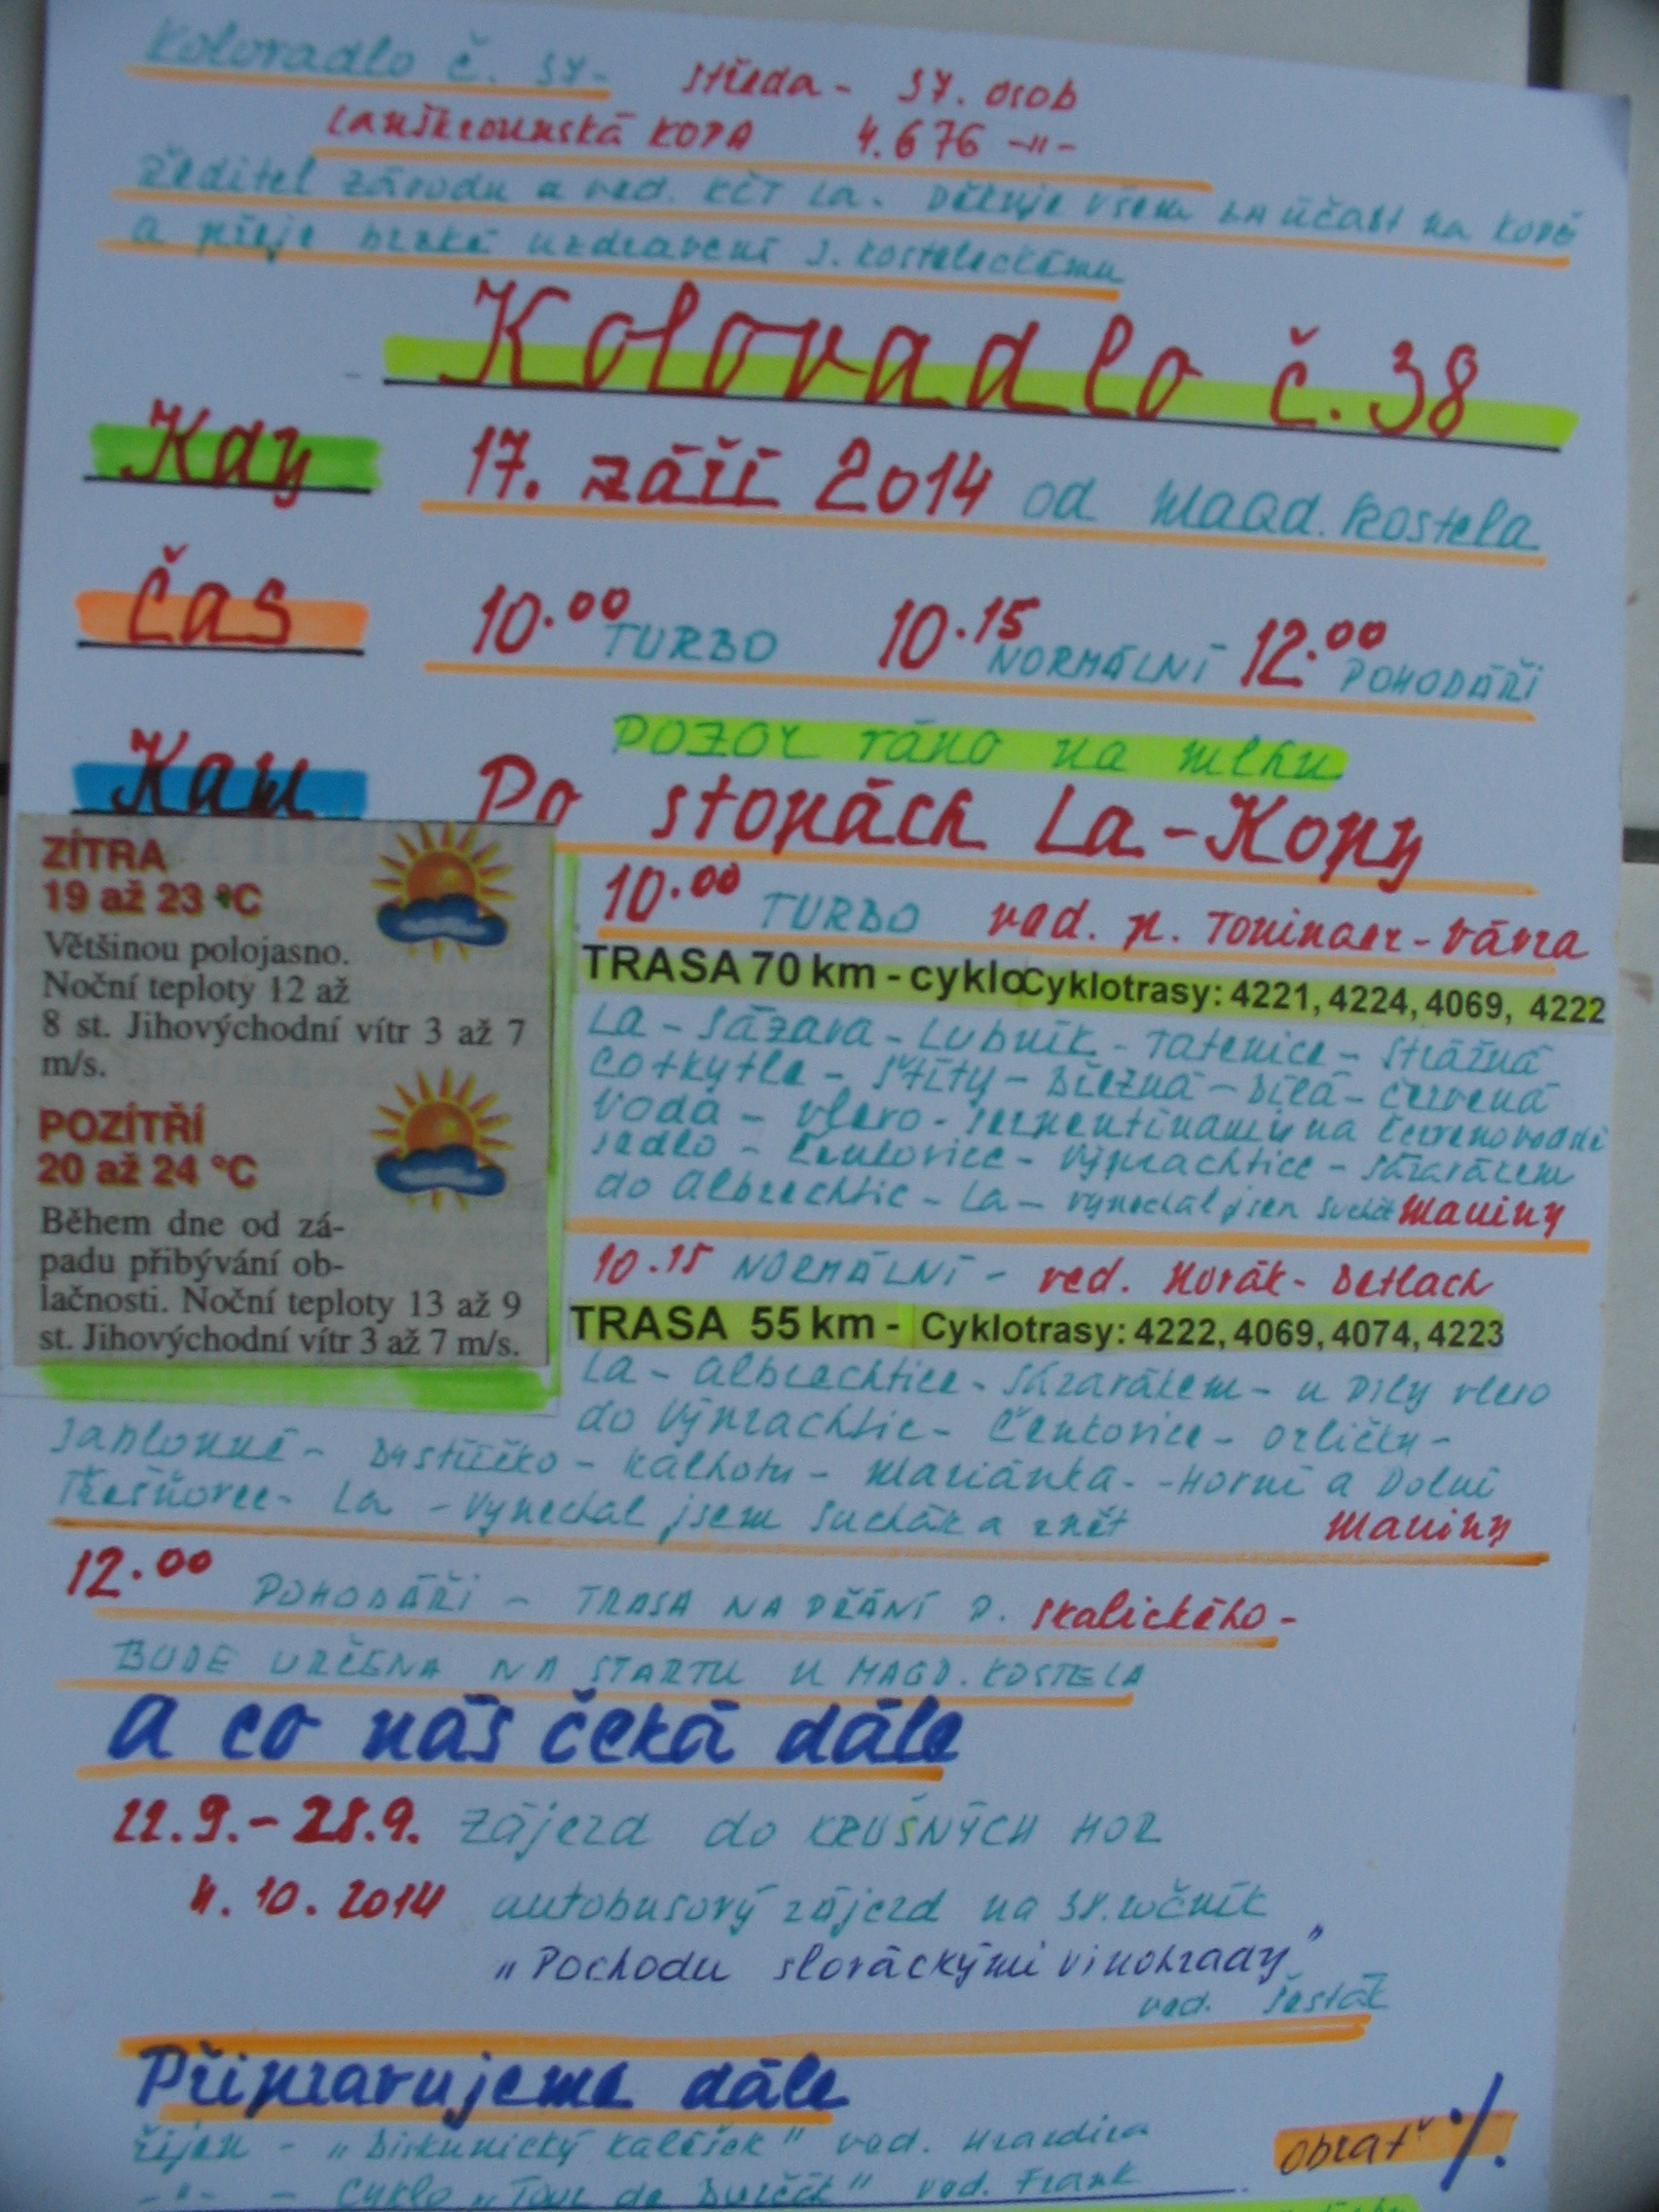 Koloradlo č. 37- středa - 37. osob
Lanškrounská KOPA 4.676 -"-
Ředitel závodu a ved. KČT La. Děkuje všem za účast na KOPĚ
a přeje brzké uzdravení J. Kosteleckému
Kolovadlo č. 38
Kdy 17. září 2014 od Magd. Kostela
Čas 10.00 TURBO 10.15 NORMÁLNÍ 12.00 POHODÁŘI
POZOR ráno na mlhu
Kam Po stopách La-Kopy
ZÍTRA
19 až 23 °C
Většinou polojasno.
Noční teploty 12 až
8 st. Jihovýchodní vítr 3 až 7
m/s.
POZÍTŘÍ
20 až 24 °C
Během dne od zá-
padu přibývání ob-
lačnosti. Noční teploty 13 až 9
st. Jihovýchodní vítr 3 až 7 m/s.
10.00 TURBO ved. p. - Vávra
TRASA 70 km - cyklo Cyklotrasy: 4221, 4224, 4069, 4222
La - Sázava - Lubník - Tatenice - Strážná
Cotkytle - Štíty - Březná - Bílá - Červená
Voda - vlevo - serpentinami na Červenovodské
sedlo - Čenkovice - Výprachtice - Sázavákem
do Albrechtic - La - vynechal jsen Maviny
10.15 NORMÁLNÍ - ved. Horák - Detlach
TRASA 55 km - Cyklotrasy: 4222, 4069, 4074, 4223
La - Albrechtice - Sázavákem - u Pily vlevo
do Výprachtic - Čenkovice - Orličky -
Jablonné - Bystříčko - Kalhotu - Mariánka - - Horní a Dolní
Třešňovec - La - Vynechal jsem Sucháka zpět Maviny
12.00 POHODÁŘI - TRASA NA PŘÁNÍ P. Skalického -
BUDE URČENA NA STARTU U MAGD. KOSTELA
A co nás čeká dále
22.9. - 28.9. Zájezd do KRUŠNÝCH HOR
4. 10. 2014 autobusový zájezd na 38. ročník
"Pochodu slováckými vinohrady"
ved. Šesták
Připravujeme dále
Říjen - " kalíšek" ved.
-"- - Cyklo "Tour de Burčák" ved. Frank
Obrať %.